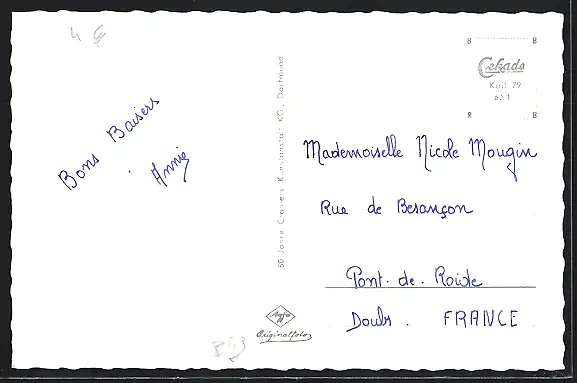 4 €
Bons Baisers
Annie
60 Jahre Cramers Kunstanstalt KG, Dortmund
Agfa
Originalfoto
B B
Cekade
Kail 79
621
R B
Mademoiselle Nicole Mougin
Rue de Besançon
Pont. de. Roide
Doubs. FRANCE